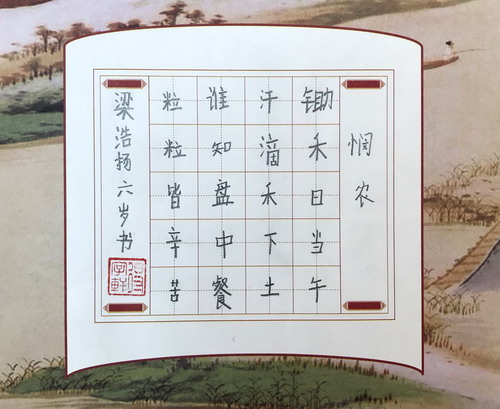 悯农
锄禾日当午
汗滴禾下土
谁知盘中餐
粒粒皆辛苦
梁浩扬六岁书